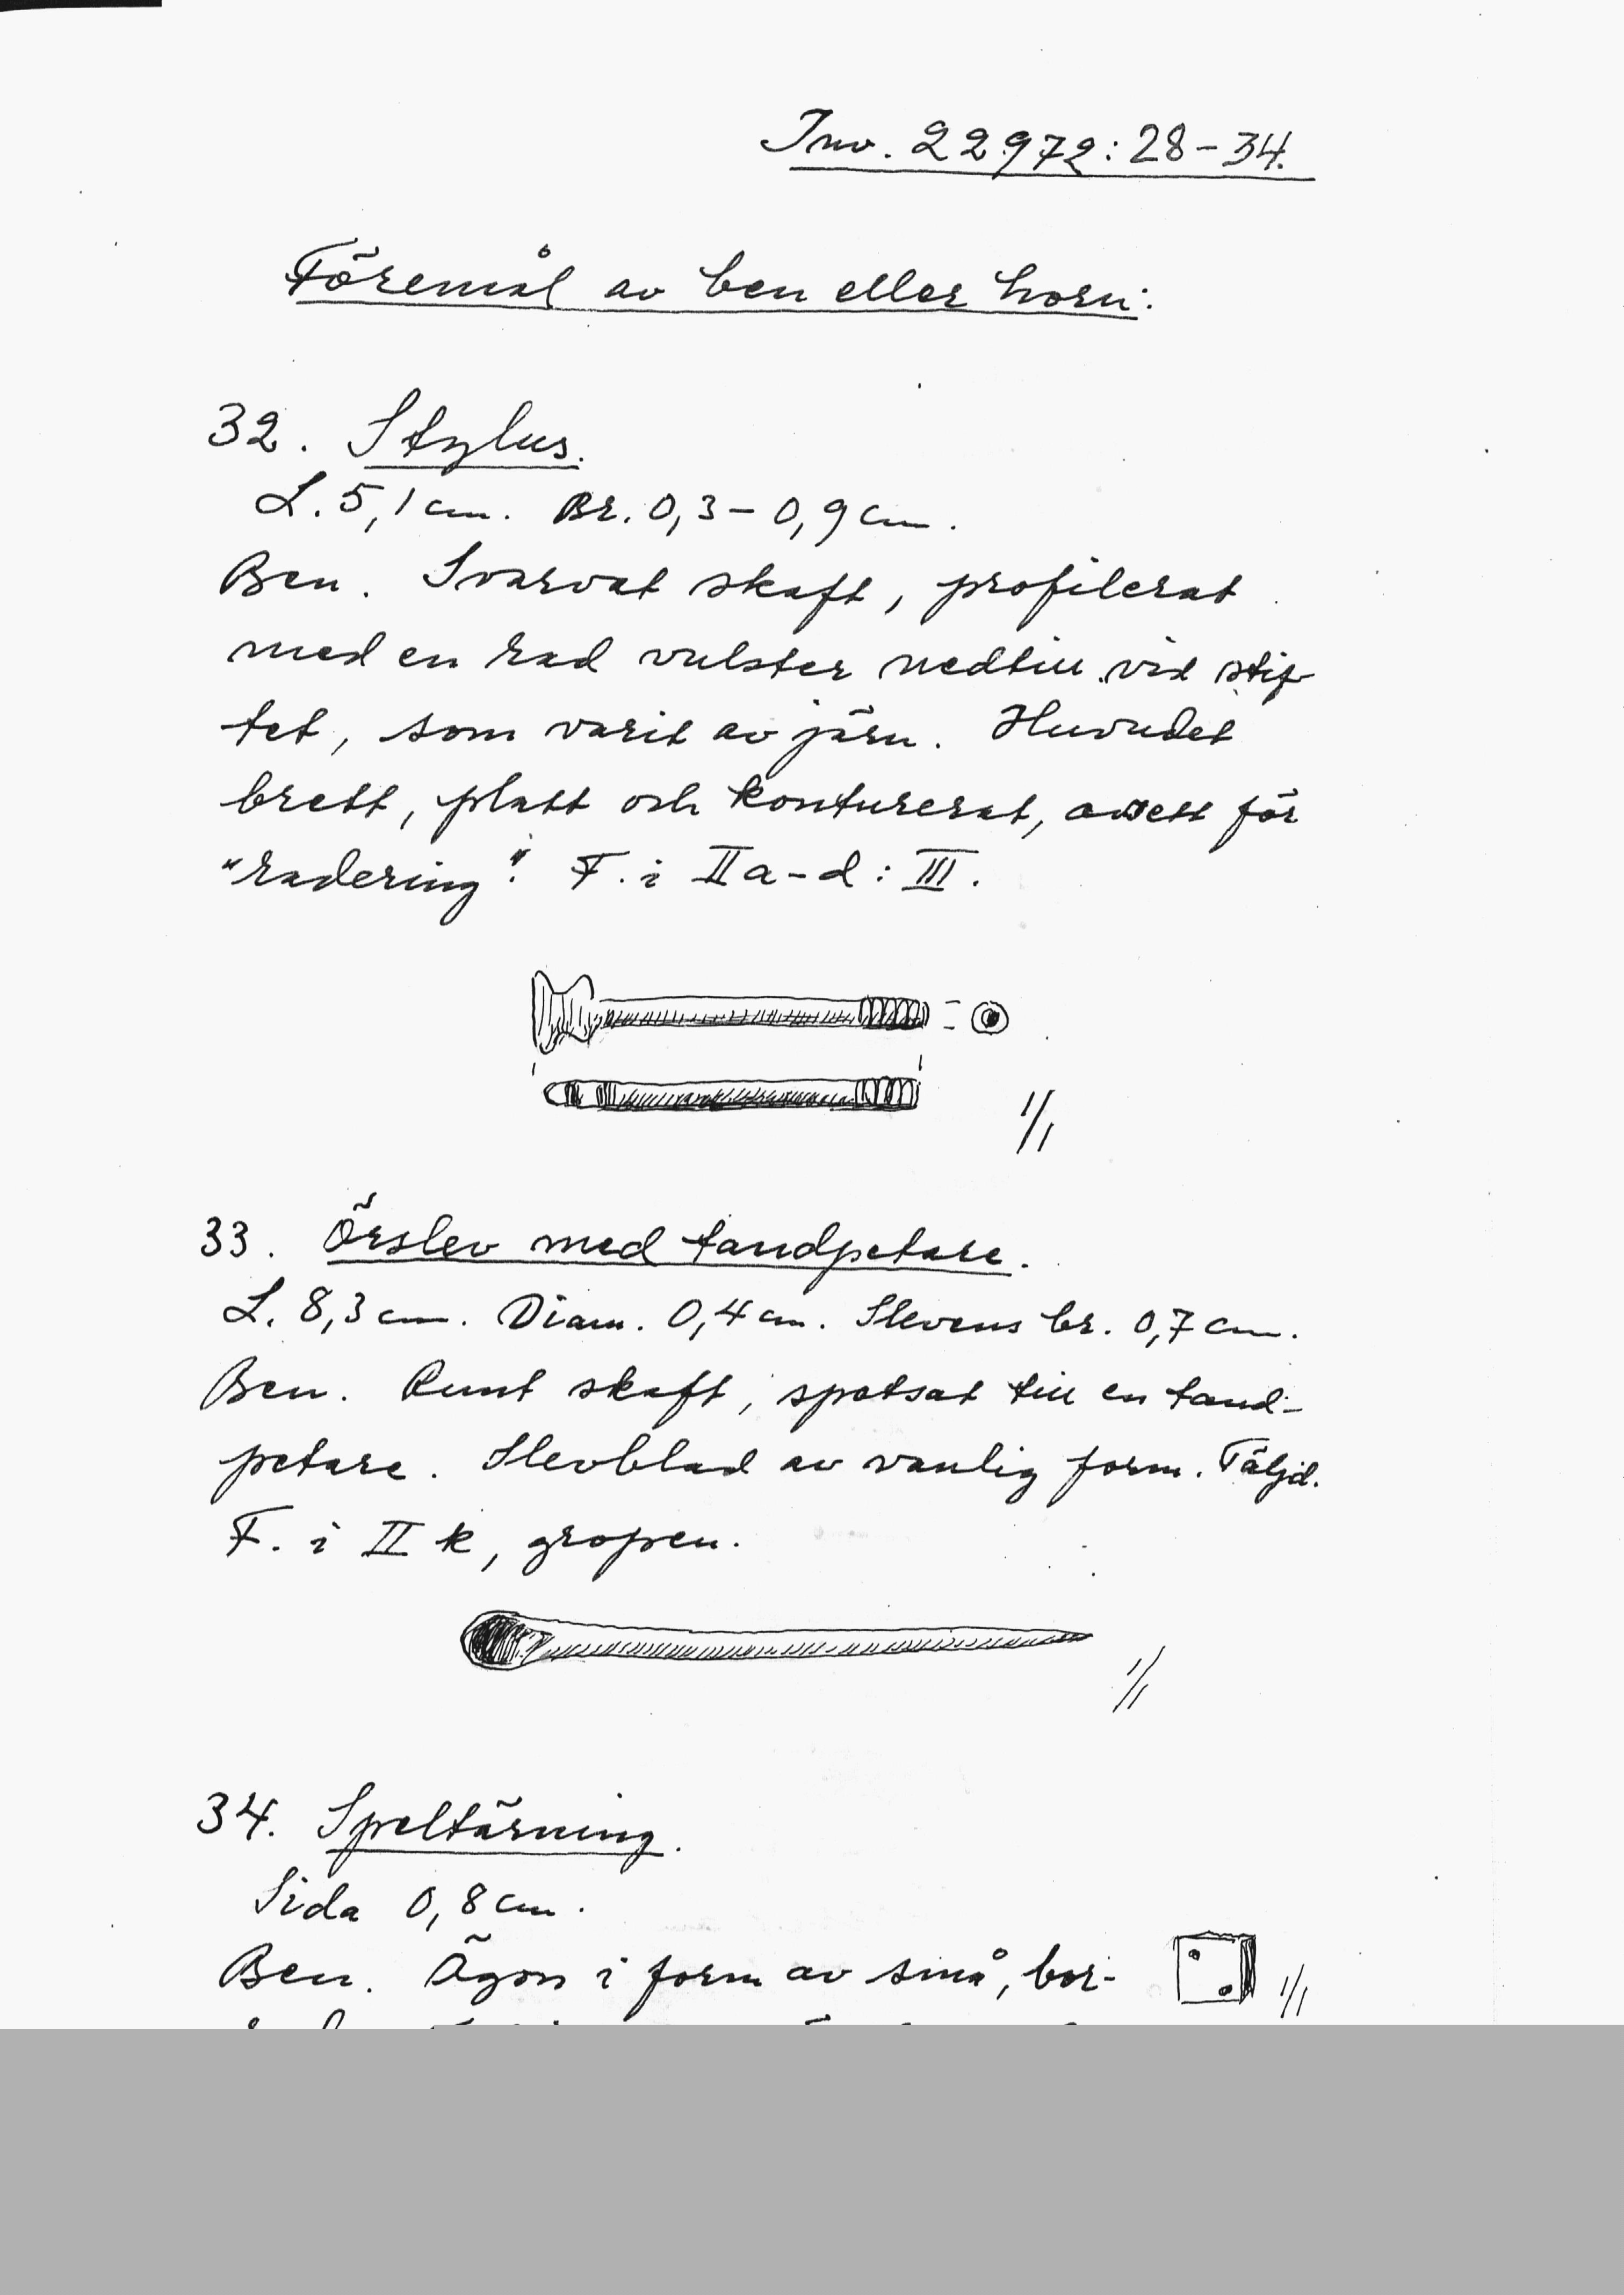 Inv. 22972:28-34.
Föremål av ben eller horn:
32. Stylus.
L. 5,1 cm. Br. 0,3-0,9 cm.
Ben. Svarvat skaft, profilerat
med en rad vulster nedtill vid stif-
tet, som varit av järn. Huvudet
brett, platt och konturerat, avsett för
"radering". F. i II a-d: III.
1/1
33. Örslev med tandpetare.
L. 8,3 cm. Diam. 0,4 cm. Slevens br. 0,7 cm.
Ben. Runt skaft, spetsat till en tand-
petare. Slevblad av vanlig form. Täljd.
F. i II k, gropen.
1/1
34. Speltärning.
Sida 0,8 cm.
Ben. Ögon i form av små, bor-
1/1